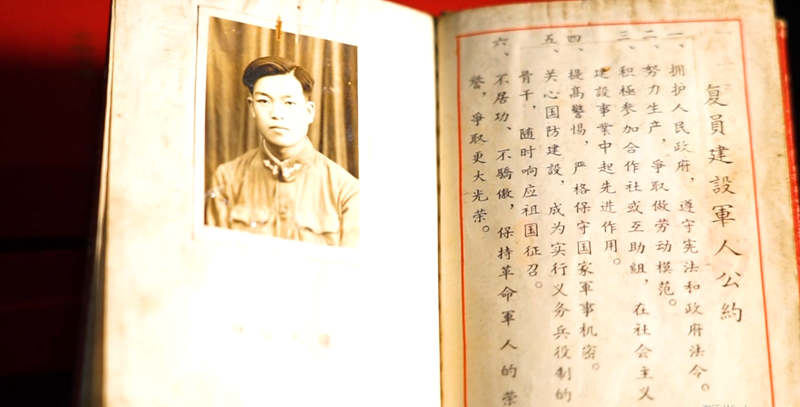 复員建設軍人公約
一、拥护人民政府，遵守宪法和政府法令。
二、努力生产，爭取做劳动模范。
三、积極参加合作社或互助組，在社会主义
建設事業中起先进作用。
四、提高警惕，严格保守国家軍事机密。
五、关心国防建設，成为实行义务兵役制的
骨干，随时响应祖国征召。
六、不居功、不驕傲，保持革命軍人的荣
譽，爭取更大光荣。